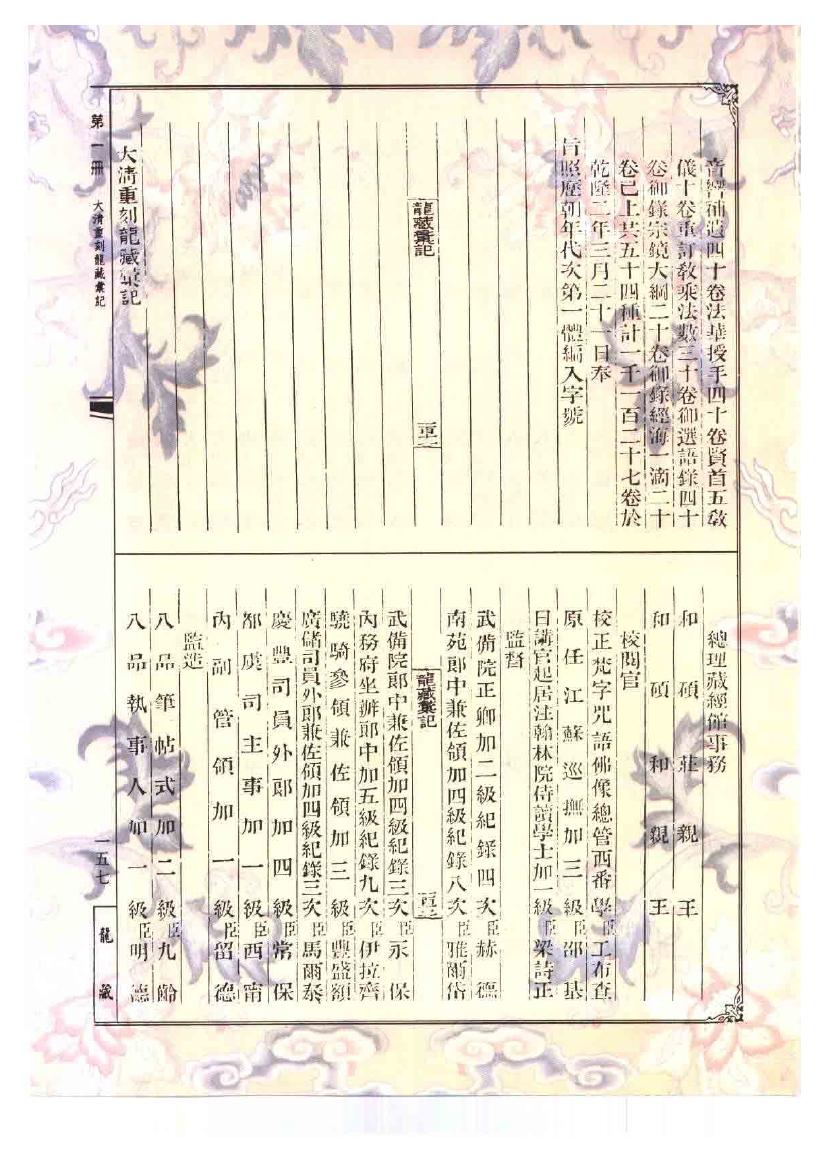 音響補遺四十卷法華授手四十卷賢首五教
儀十卷重訂教乘法數三十卷御選語錄四十
卷御錄宗鏡大綱二十卷御錄經海一滴二十
卷已上共五十四種計一千一百二十七卷於
乾隆二年三月二十一日奉
旨照歷朝年代次第一體編入字號
龍藏彙記
大清重刻龍藏彙記
總理藏經館事務
和碩莊親王
和碩和親王
校閱官
校正梵字咒語佛像總管西番學臣工布查
原任江蘇巡撫加三級臣邵基
日講官起居注翰林院侍讀學士加一級臣梁詩正
監督
武備院正卿加二級紀錄四次臣赫德
南苑郎中兼佐領加四級紀錄八次臣雅爾岱
龍藏彙記
武備院郎中兼佐領加四級紀錄三次臣永保
內務府坐辦郎中加五級紀錄九次臣伊拉齊
驍騎參領兼佐領加三級臣豐盛額
廣儲司員外郎兼佐領加四級紀錄三次臣馬爾泰
慶豐司員外郎加四級臣常保
都虞司主事加一級臣西甯
內副管領加一級臣留德
監造
八品筆帖式加二級臣九齡
八品執事人加一級臣明德
第一冊
大清重刻龍藏彙記
一五七
龍藏